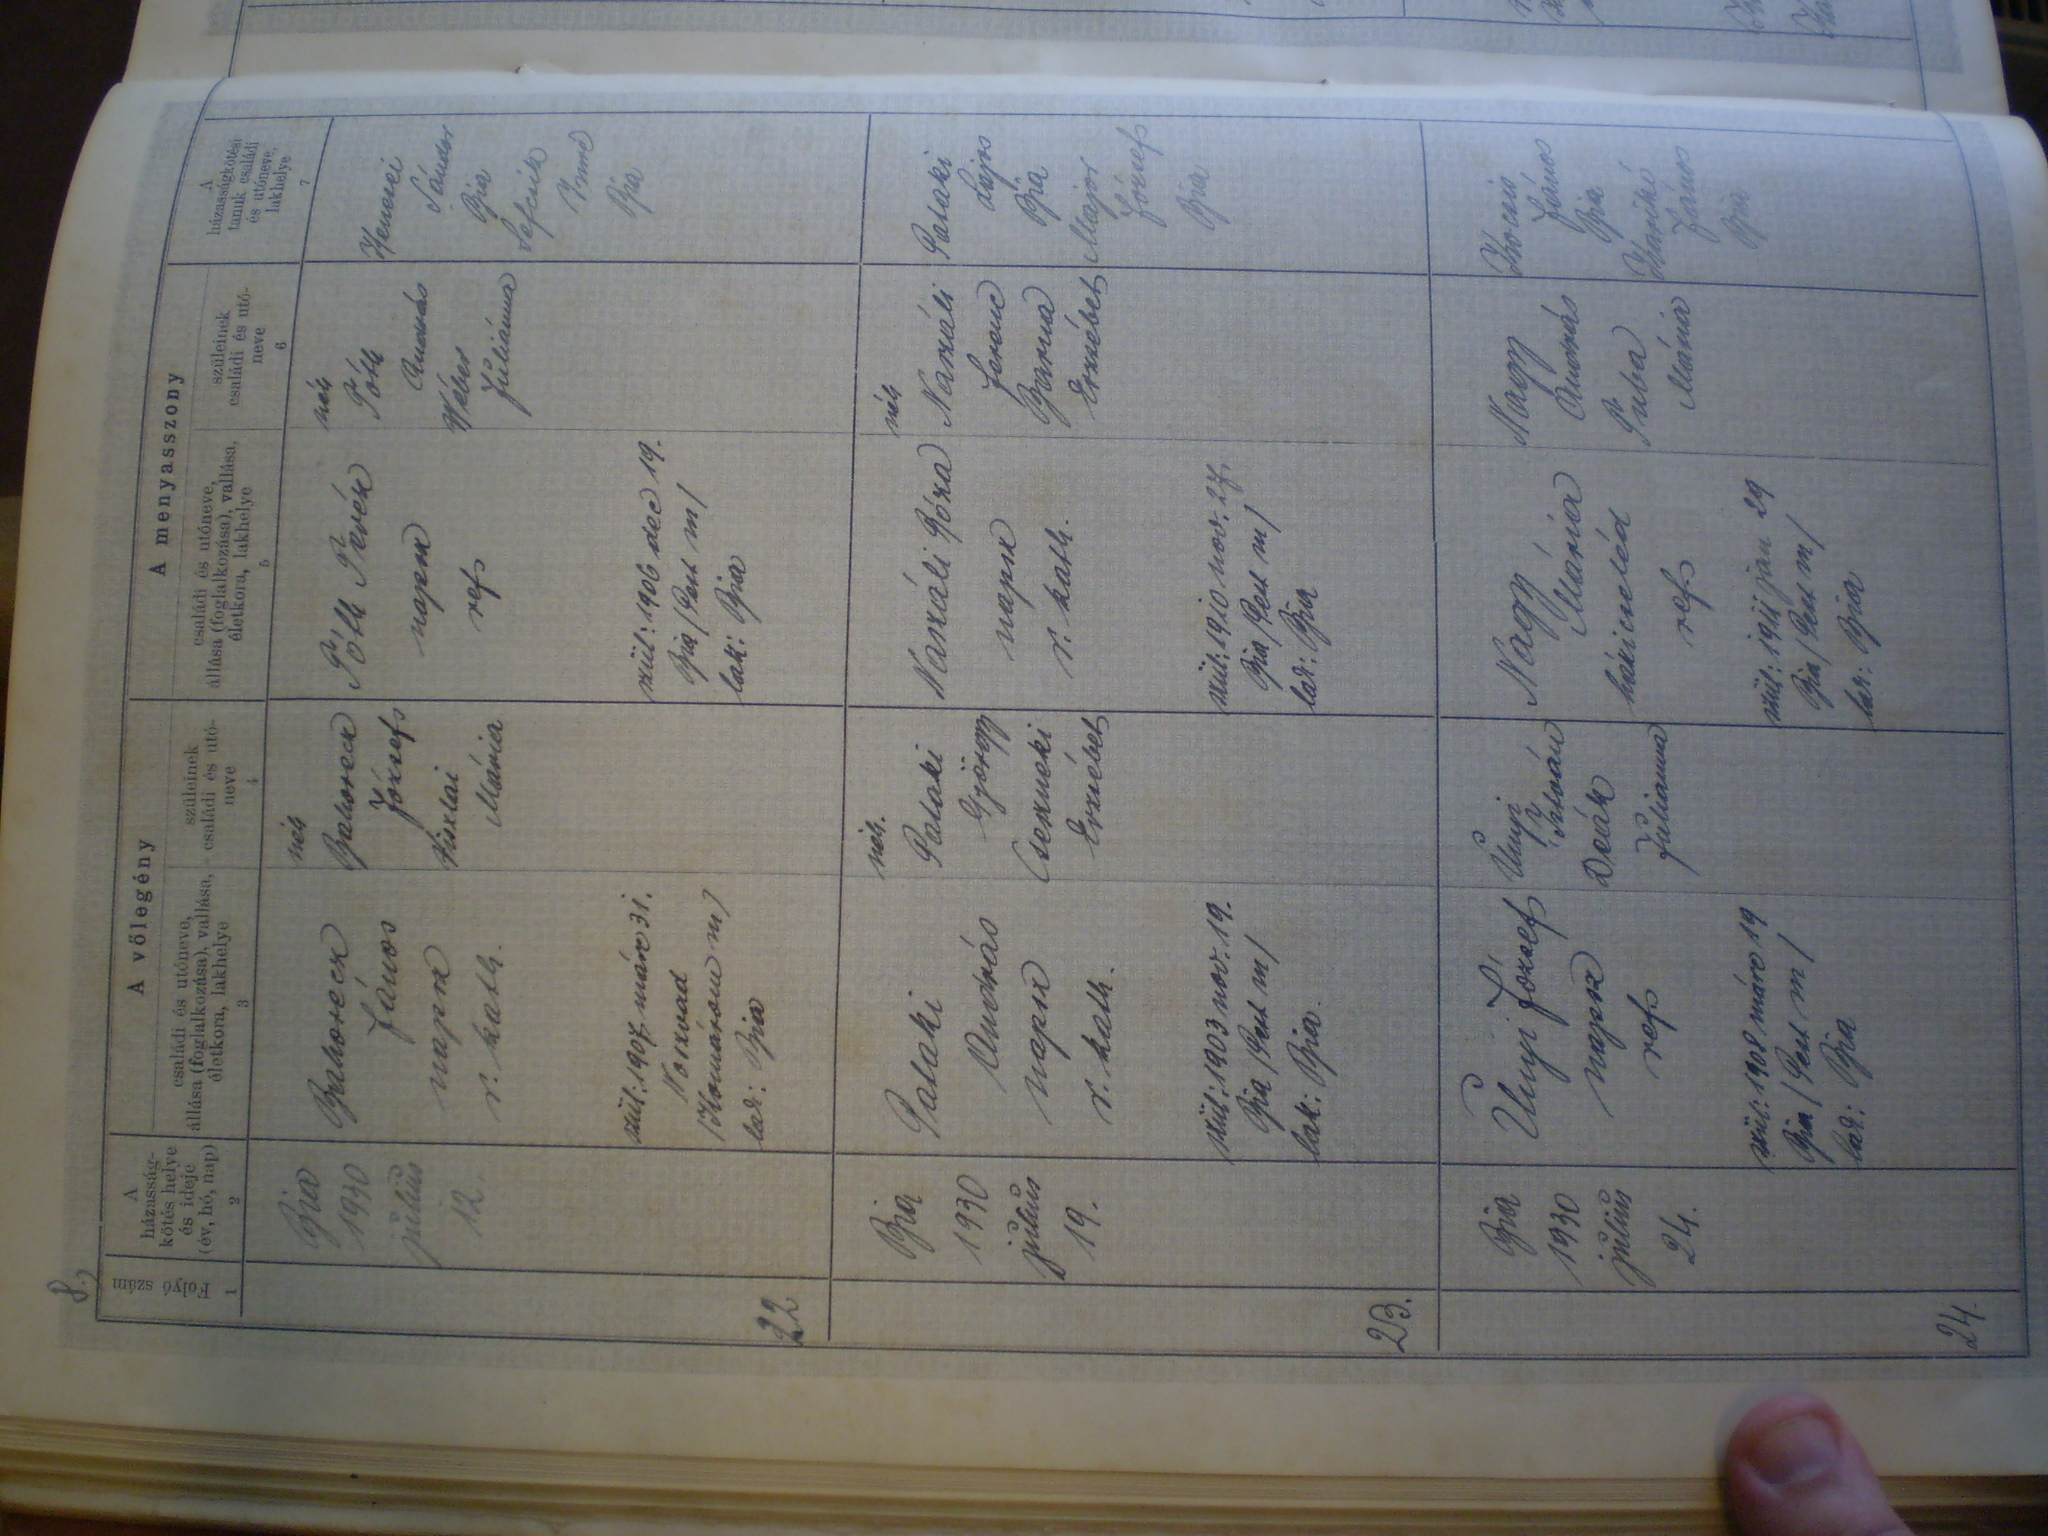 8.
A völegény
A menyasszony
Folyó szám
1
A
házasság-
kötés helye
és ideje
(év, hó, nap)
2
családi és utóneve,
állása (foglalkozása), vallása,
életkora, lakhelye
3
szüleinek
családi és utó-
neve
4
családi és utóneve,
állása (foglalkozása), vallása,
életkora, lakhelye
5
szüleinek
családi és utó-
neve
6
A
házasságkötési
tanuk családi
és utóneve,
lakhelye
7
22
Bia
1930
július
12.
János
napsz
r. kath.
szül: 1907 márc 31.
Noszvad
(Komárom m)
lak: Bia
néh
József
Mária
Tóth Teréz
napsz
ref
szül: 1906 dec 19.
Bia (Pest m)
lak: Bia
néh
Tóth
András
Wéber
Juliánna
Sándor
Bia
Imre
Bia
23.
Bia
1930
július
19.
Pataki
András
napsz
r. kath.
szül: 1903 nov. 19.
Bia (Pest m)
lak: Bia
néh.
Pataki
György
Cseszneki
Erzsébet
Naszáli Róza
napsz
r. kath.
szül: 1910 nov. 27.
Bia (Pest m)
lak: Bia
néh
Naszáli
Ferenc
Barna
Erzsébet
Pataki
Lajos
Bia
Major
József
Bia
24.
Bia
1930
július
24.
Únyi József
napsz
ref
szül: 1908 márc 19
Bia (Pest m)
lak: Bia
Únyi
István
Deák
Julianna
Nagy
Mária
házicseléd
ref
szül: 1911 jan 29
Bia (Pest m)
lak: Bia
Nagy
András
Tuba
Mária
Kocsis
János
Bia
János
Bia